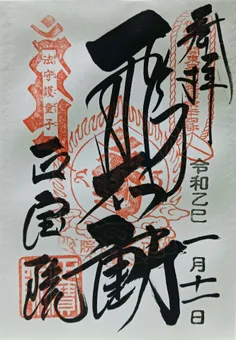 奉拝
令和乙巳 一月十一日
飛不動
法守護童子
正宝院